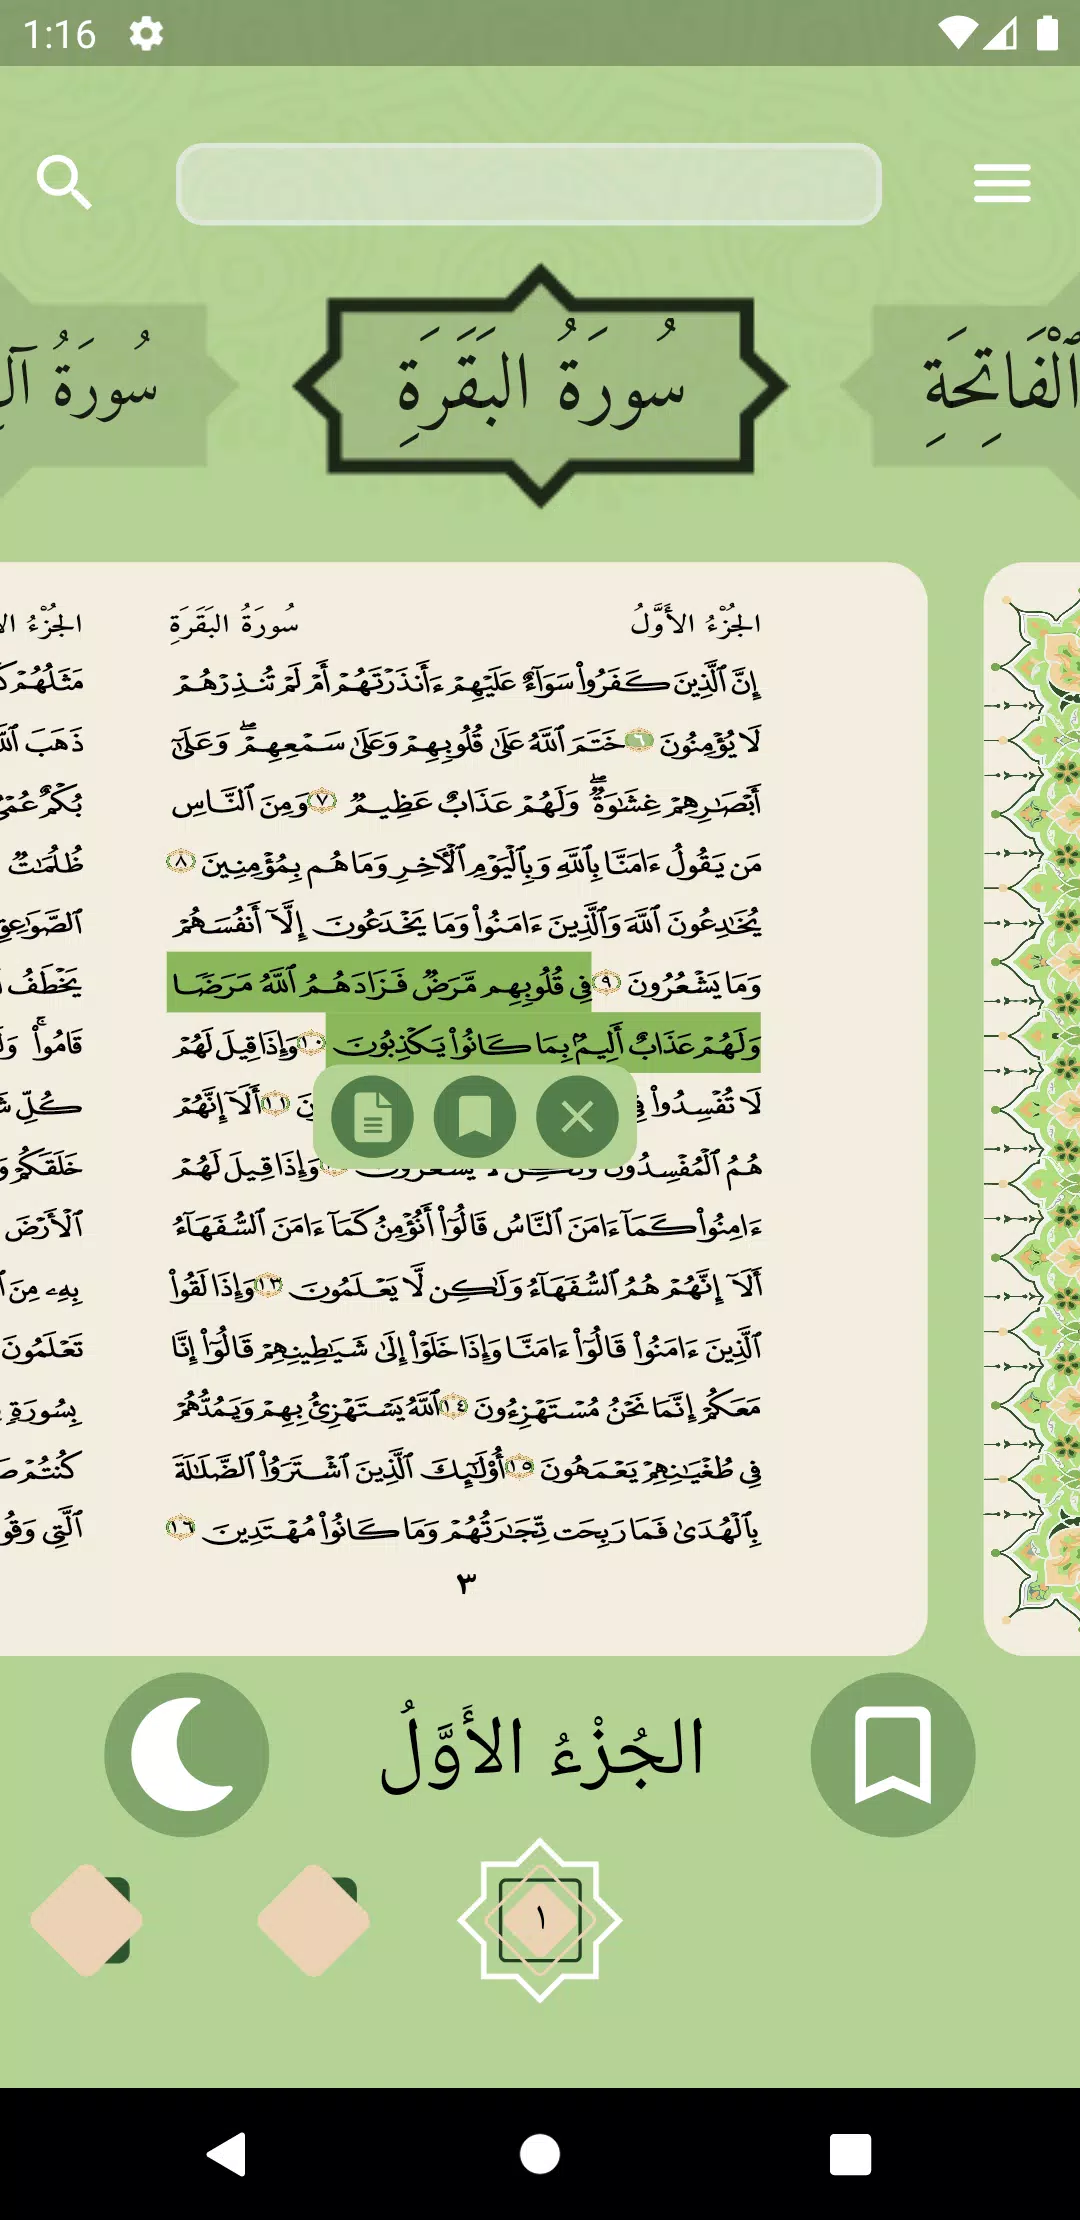 1:16
سُورَةُ البَقَرَةِ
ٱلْفَاتِحَةِ
سُورَةُ
الجُزْءُ الأَوَّلُ
سُورَةُ البَقَرَةِ
إِنَّ ٱلَّذِينَ كَفَرُوا۟ سَوَآءٌ عَلَيْهِمْ ءَأَنذَرْتَهُمْ أَمْ لَمْ تُنذِرْهُمْ
لَا يُؤْمِنُونَ ٦ خَتَمَ ٱللَّهُ عَلَىٰ قُلُوبِهِمْ وَعَلَىٰ سَمْعِهِمْ ۖ وَعَلَىٰٓ
أَبْصَـٰرِهِمْ غِشَـٰوَةٌ ۖ وَلَهُمْ عَذَابٌ عَظِيمٌ ٧ وَمِنَ ٱلنَّاسِ
مَن يَقُولُ ءَامَنَّا بِٱللَّهِ وَبِٱلْيَوْمِ ٱلْـَٔاخِرِ وَمَا هُم بِمُؤْمِنِينَ ٨
يُخَـٰدِعُونَ ٱللَّهَ وَٱلَّذِينَ ءَامَنُوا۟ وَمَا يَخْدَعُونَ إِلَّآ أَنفُسَهُمْ
وَمَا يَشْعُرُونَ ٩ فِى قُلُوبِهِم مَّرَضٌ فَزَادَهُمُ ٱللَّهُ مَرَضًا
وَلَهُمْ عَذَابٌ أَلِيمٌۢ بِمَا كَانُوا۟ يَكْذِبُونَ ١٠ وَإِذَا قِيلَ لَهُمْ
لَا تُفْسِدُوا۟ ١١ أَلَآ إِنَّهُمْ
هُمُ ٱلْمُفْسِدُونَ وَلَـٰكِن لَّا يَشْعُرُونَ وَإِذَا قِيلَ لَهُمْ
ءَامِنُوا۟ كَمَآ ءَامَنَ ٱلنَّاسُ قَالُوٓا۟ أَنُؤْمِنُ كَمَآ ءَامَنَ ٱلسُّفَهَآءُ
أَلَآ إِنَّهُمْ هُمُ ٱلسُّفَهَآءُ وَلَـٰكِن لَّا يَعْلَمُونَ ١٣ وَإِذَا لَقُوا۟
ٱلَّذِينَ ءَامَنُوا۟ قَالُوٓا۟ ءَامَنَّا وَإِذَا خَلَوْا۟ إِلَىٰ شَيَـٰطِينِهِمْ قَالُوٓا۟ إِنَّا
مَعَكُمْ إِنَّمَا نَحْنُ مُسْتَهْزِءُونَ ١٤ ٱللَّهُ يَسْتَهْزِئُ بِهِمْ وَيَمُدُّهُمْ
فِى طُغْيَـٰنِهِمْ يَعْمَهُونَ ١٥ أُو۟لَـٰٓئِكَ ٱلَّذِينَ ٱشْتَرَوُا۟ ٱلضَّلَـٰلَةَ
بِٱلْهُدَىٰ فَمَا رَبِحَت تِّجَـٰرَتُهُمْ وَمَا كَانُوا۟ مُهْتَدِينَ ١٦
٣
الجُزْءُ
مَثَلُهُمْ
ذَهَبَ
بُكْمٌ
ظُلُمَـٰتٌ
يَخْطَفُ
قَامُوا۟
كُلِّ
خَلَقَكُمْ
ٱلْأَرْضَ
بِهِۦ مِنَ
تَعْلَمُونَ
بِسُورَةٍ
كُنتُمْ
ٱلَّتِى
الجُزْءُ الأَوَّلُ
١